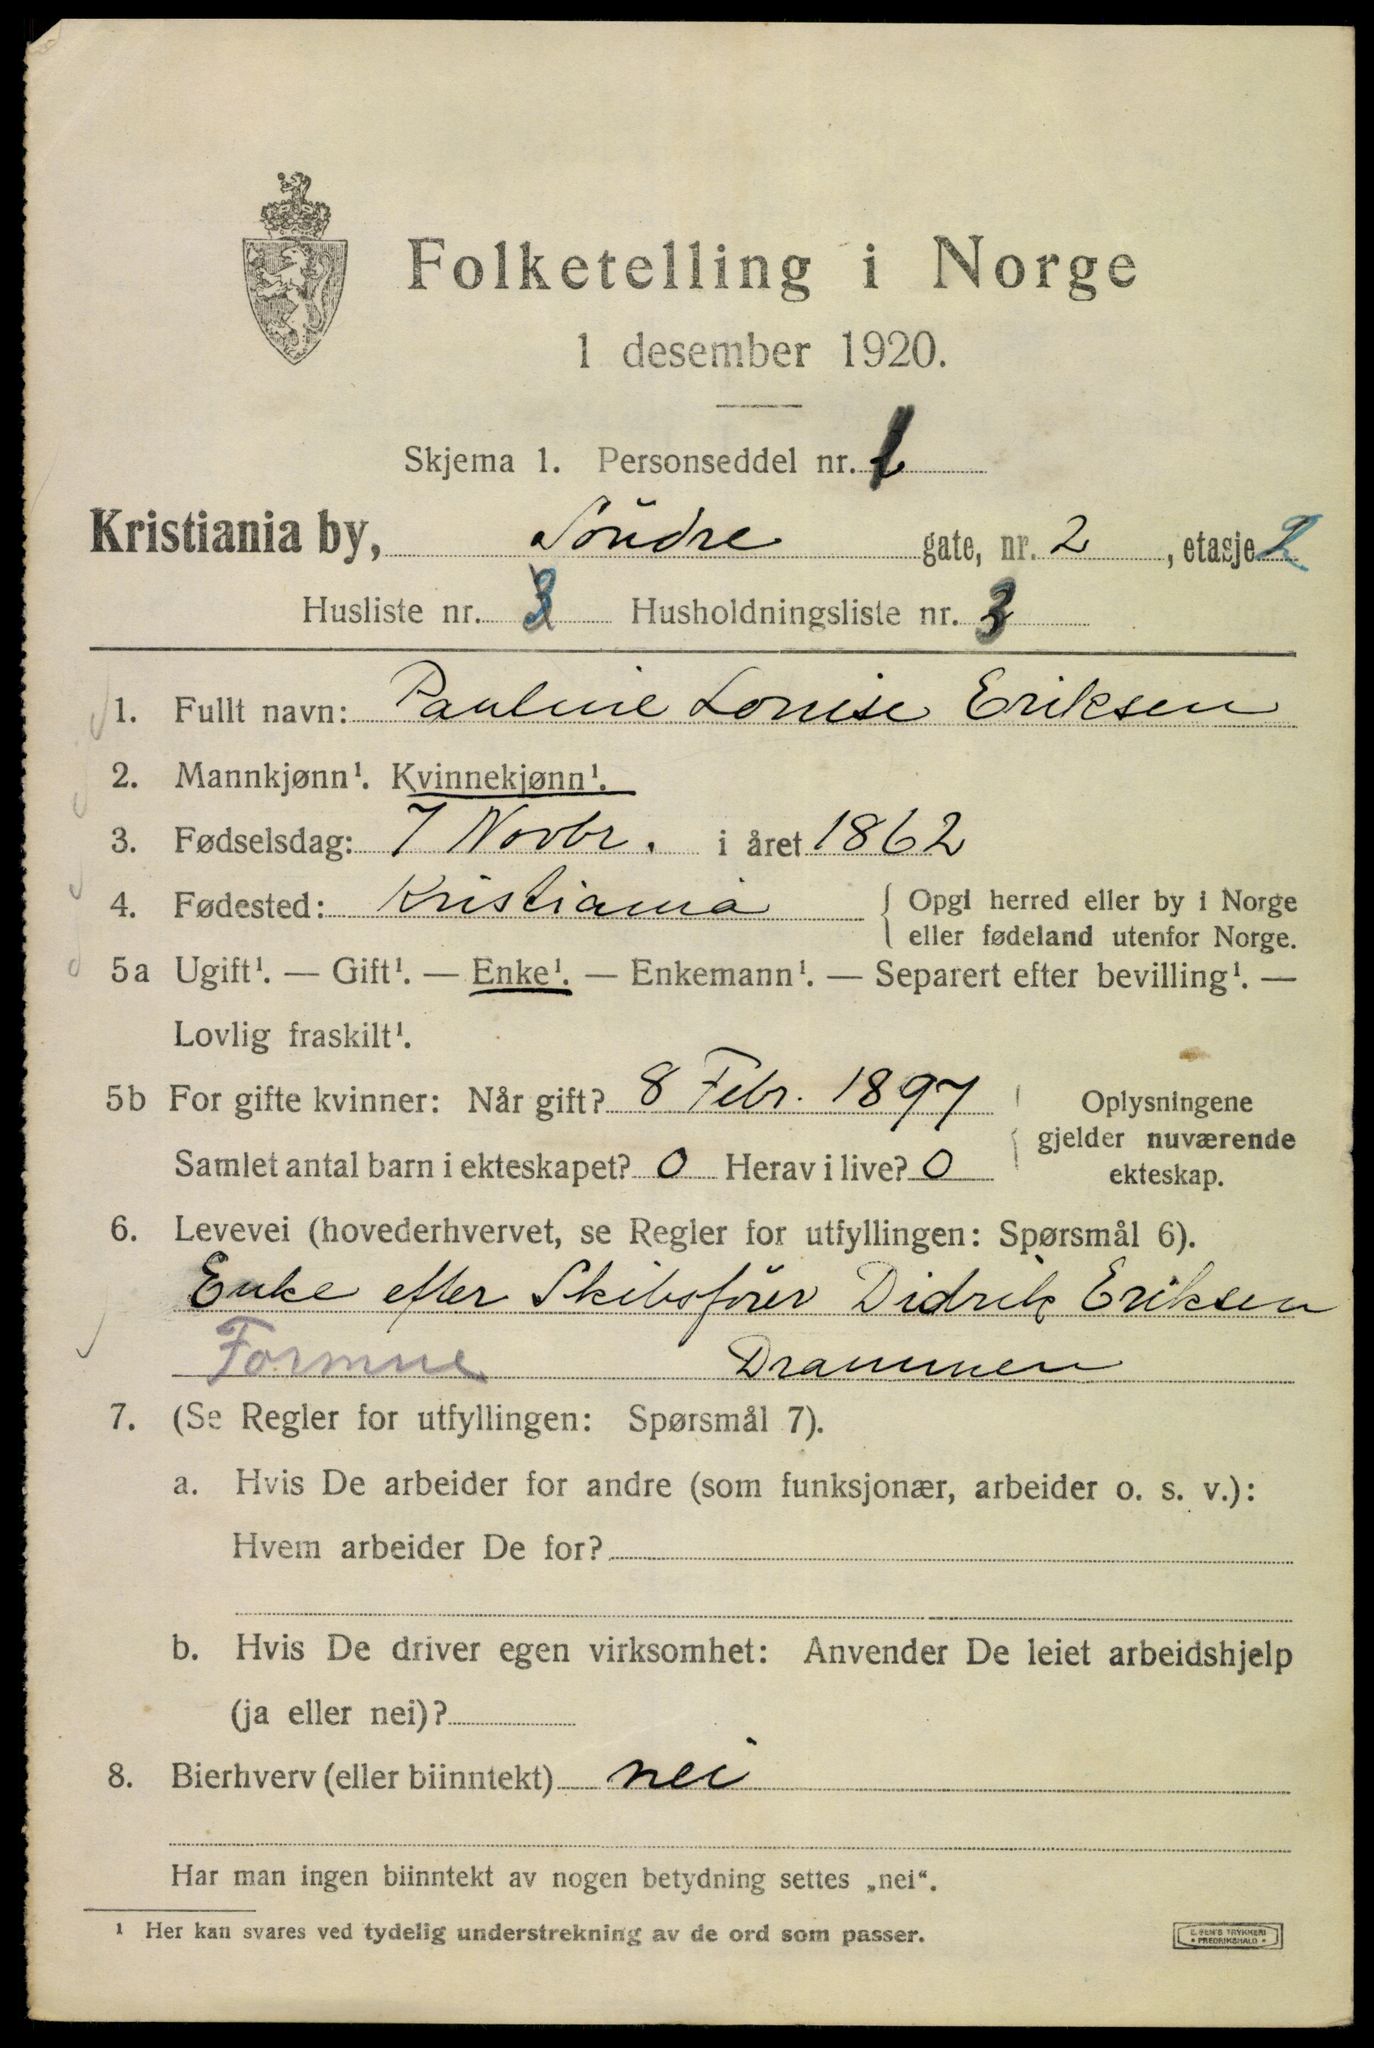 Folketelling i Norge
1 desember 1920.
Skjema 1. Personseddel nr. 1
Kristiania by, Söndre gate, nr. 2, etasje 2
Husliste nr. Husholdningsliste nr. 3
1. Fullt navn: Pauline Louise Eriksen
2. Mannkjønn¹. Kvinnekjønn¹.
3. Fødselsdag: 7 Novbr. i året 1862
4. Fødested: Kristiania { Opgi herred eller by i Norge
eller fødeland utenfor Norge.
5a Ugift¹. — Gift¹. — Enke¹. — Enkemann¹. — Separert efter bevilling¹. —
Lovlig fraskilt¹.
5b For gifte kvinner: Når gift? 8 Febr. 1897
Samlet antal barn i ekteskapet? 0 Herav i live? 0
Oplysningene
gjelder nuværende
ekteskap.
6. Levevei (hovederhvervet, se Regler for utfyllingen: Spørsmål 6).
Enke efter Skibsförer Didrik Eriksen
Formue Drammen
7. (Se Regler for utfyllingen: Spørsmål 7).
a. Hvis De arbeider for andre (som funksjonær, arbeider o. s. v.):
Hvem arbeider De for?
b. Hvis De driver egen virksomhet: Anvender De leiet arbeidshjelp
(ja eller nei)?
8. Bierhverv (eller biinntekt) nei
Har man ingen biinntekt av nogen betydning settes „nei“.
¹ Her kan svares ved tydelig understrekning av de ord som passer.
TRYKKERI
FREDRIKSHALD